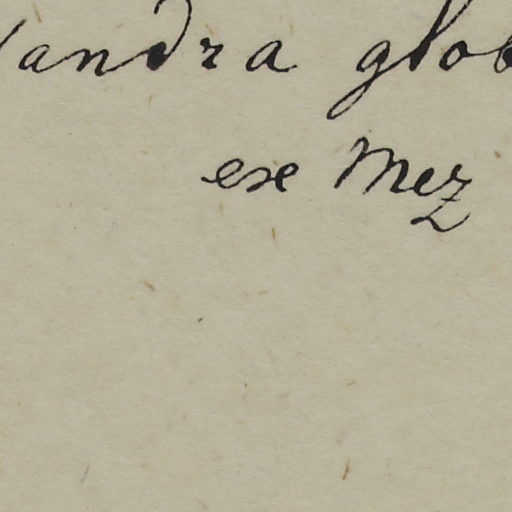 andra glob
exe Mez